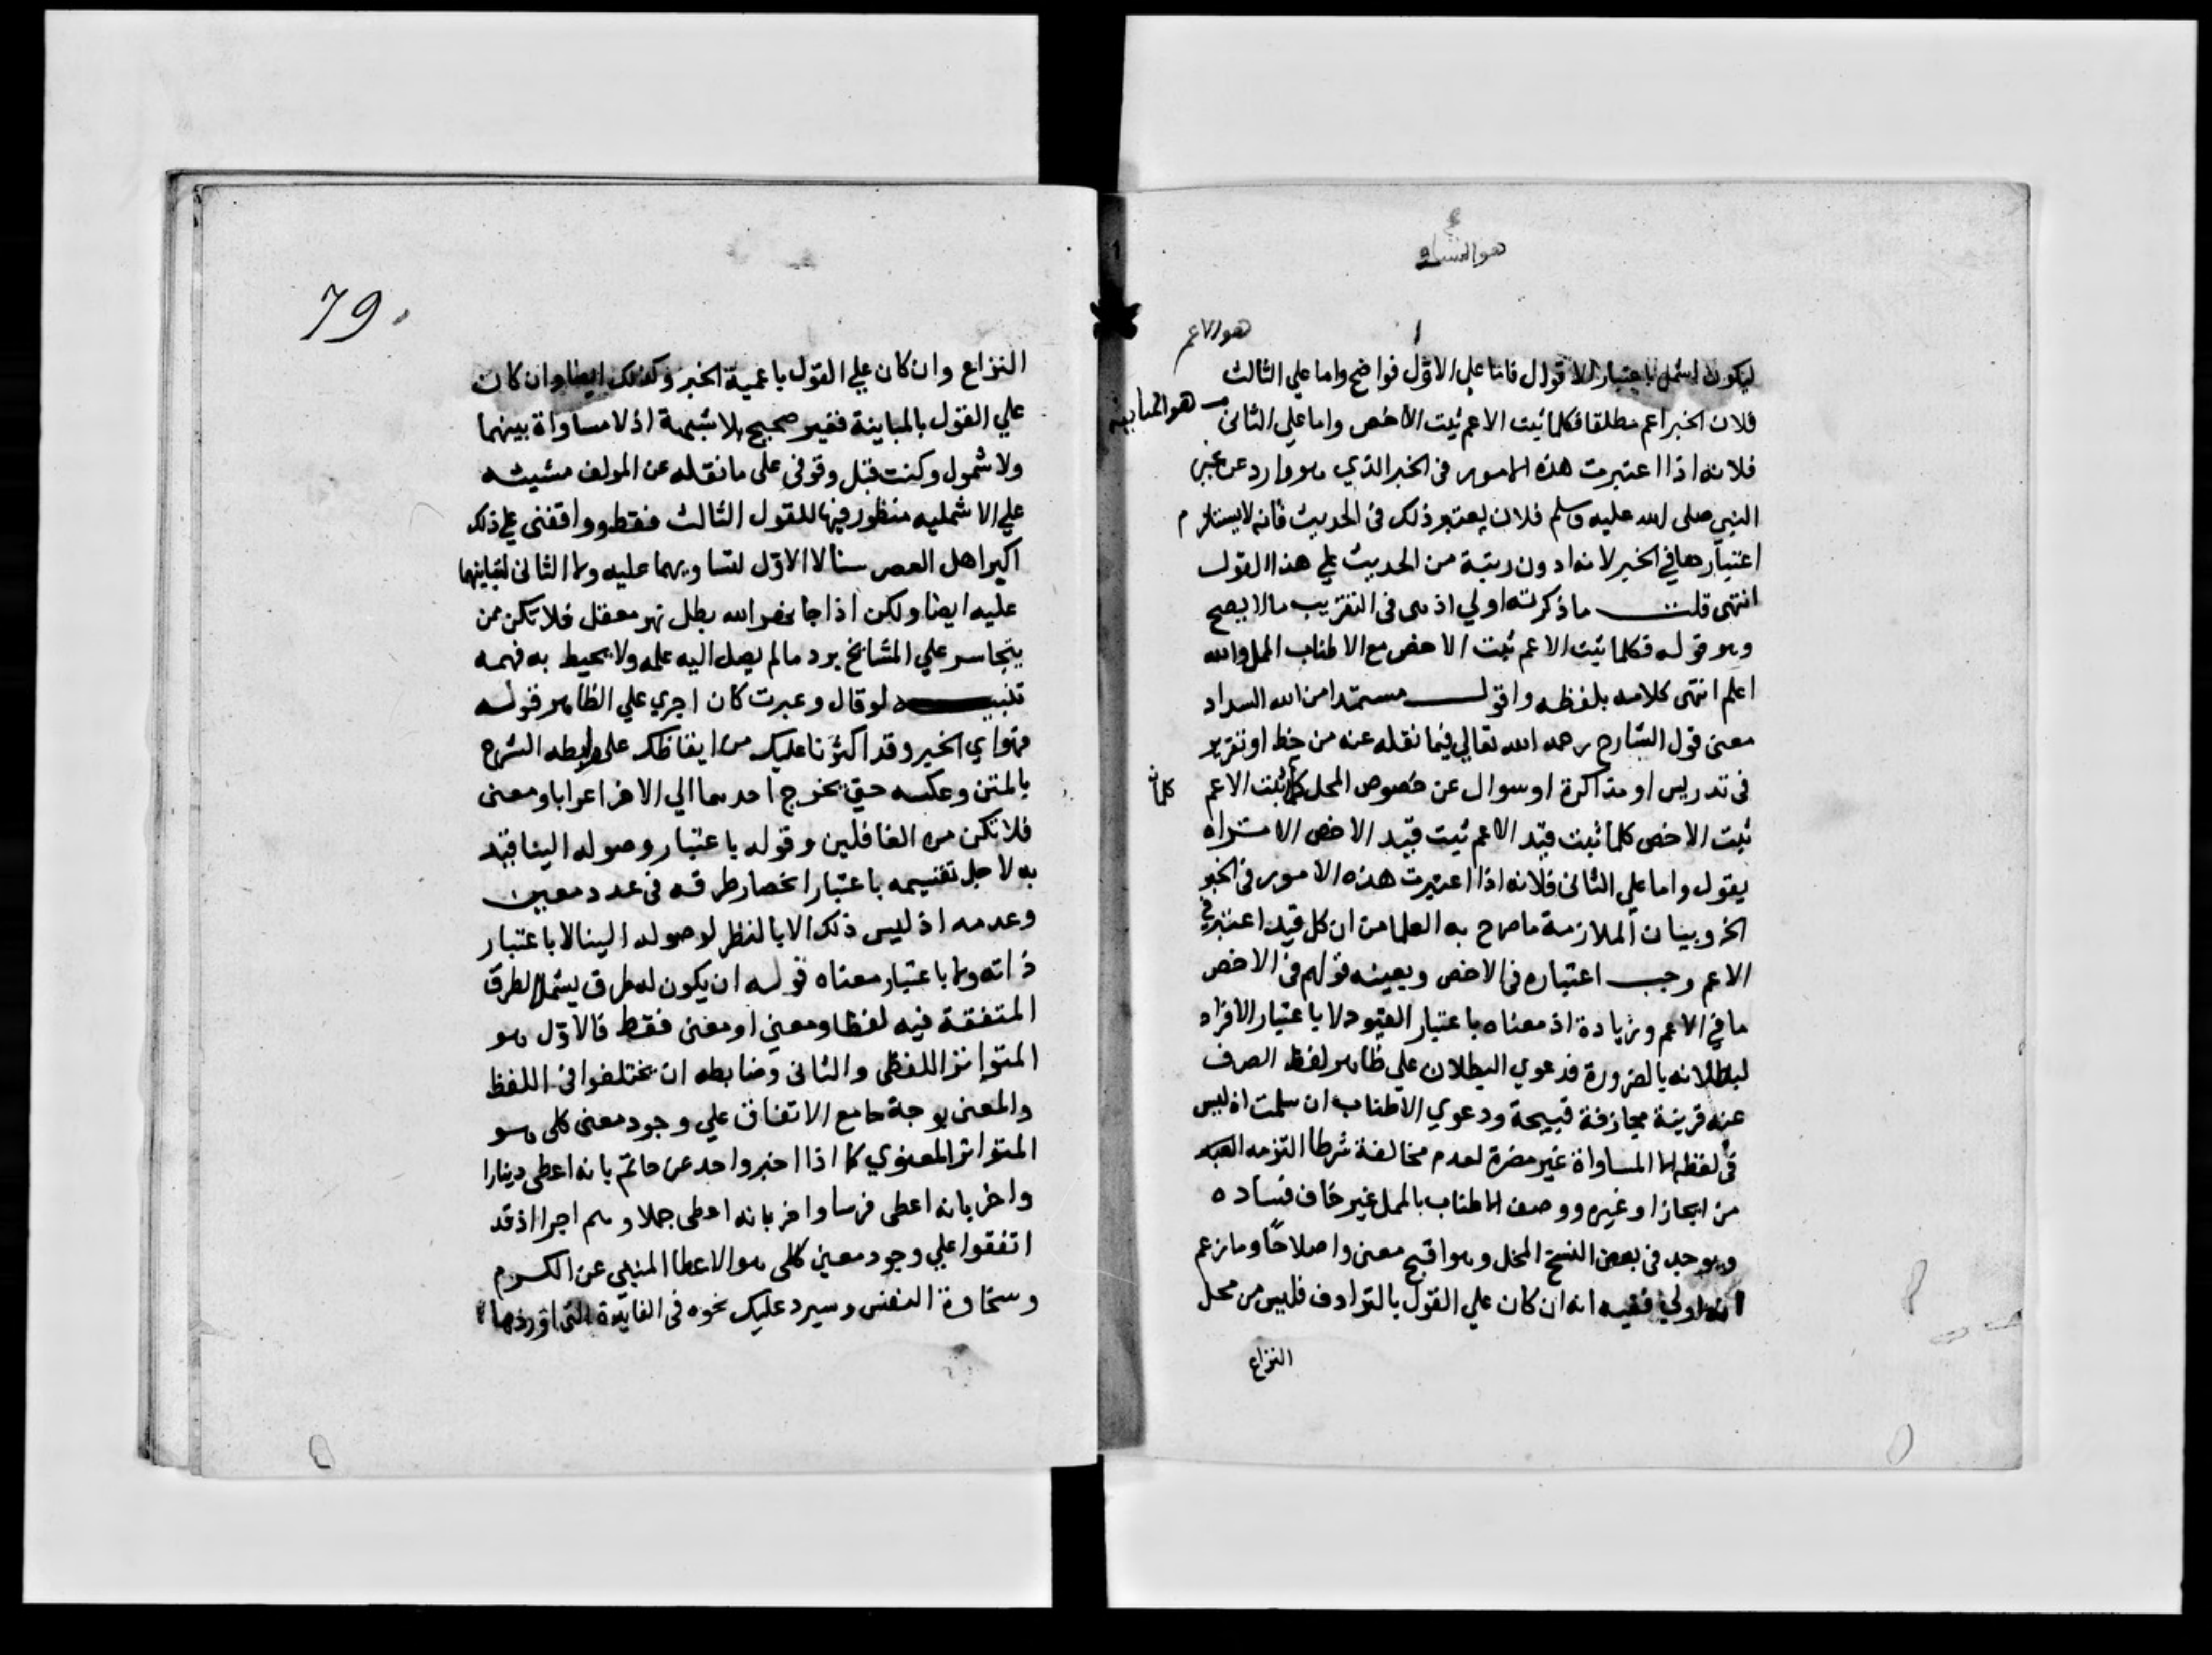 هو التساوي
هو الاعم
ليكون اشمل باعتبار الاقوال فاما علي الاول فواضح واما علي الثالث
فلان الخبر اعم مطلقا فكلما ثبت الاعم ثبت الاخص واما علي الثاني
هو المباينة
فلانه اذا اعتبرت هذه الامور في الخبر الذي هو وارد عن غير
النبي صلى الله عليه وسلم فلان يعتبر ذلك في الحديث فانه لا يستلزم
اعتبارها في الخبر لانه ادون رتبة من الحديث علي هذا القول
انتهى قلت ما ذكرته اولي اذ في التقريب ما لا يصح
وهو قوله فكلما ثبت الاعم ثبت الاخص مع الاطناب الممل والله
اعلم انتهى كلامه بلفظه واقول مستمدا من الله السداد
معنى قول الشارح رحمه الله تعالي فيما نقله عنه من خط او تقرير
في تدريس او مذاكرة او سوال عن خصوص المحل كلما ثبت الاعم
كلما
ثبت الاخص كلما ثبت قيد الاعم ثبت قيد الاخص الا تراه
يقول واما علي الثاني فلانه اذا اعتبرت هذه الامور في الخبر
الخ وبيان الملازمة ما صرح به العلما من ان كل قيد اعتبر في
الاعم وجب اعتباره في الاخص وبعينه قولهم في الاخص
ما في الاعم وزيادة اذ معناه باعتبار القيود لا باعتبار الافراد
لبطلانه بالضرورة فدعوي البطلان علي ظاهر لفظ الصرف
عنه قرينة مجازفة قبيحة ودعوي الاطناب ان سلمت اذ ليس
في لفظه الا المساواة غير مضرة لعدم مخالفة شرط التزمه
من ايجاز او غيره ووصف الاطناب بالممل غير خاف فساده
ويوجد في بعض النسخ المخل وهو اقبح معنى واصلاحًا وما زعم
انه اولي ففيه انه ان كان علي القول بالترادف فليس من محل
النزاع
79
النزاع وان كان علي القول باعمية الخبر وكذلك ايضا وان كان
علي القول بالمباينة فغير صحيح بلا شبهة اذ لا مساواة بينهما
ولا شمول وكنت قبل وقوفي على ما نقله عن المولف مشيته
علي الاشمليه منظور فيها للقول الثالث فقط ووافقني علي ذلك
اكبر اهل العصر سنا لا الاول لتساويهما عليه ولا الثاني لتباينهما
عليه ايضا ولكن اذا جا نهر الله بطل نهر معقل فلا تكن ممن
يتجاسر علي المشايخ برد ما لم يصل اليه علمه ولا يحيط به فهمه
تنبيه لو قال وعبرت كان اجري علي الظاهر قوله
فهو اي الخبر وقد اكثرنا عليك من ايقاظك على ربطه الشرح
بالمتن وعكسه حتي يخرج احدهما الي الاخر اعرابا ومعنى
فلا تكن من الغافلين وقوله باعتبار وصوله الينا قيد
به لاجل تقسيمه باعتبار انحصار طرقه في عدد معين
وعدمه اذ ليس ذلك الا بالنظر لوصوله الينا لا باعتبار
ذاته ولا باعتبار معناه قوله ان يكون له طرق يشمل الطرق
المتفقة فيه لفظا ومعنى او معنى فقط فالاول هو
المتواتر اللفظي والثاني وضابطه ان يختلفوا في اللفظ
والمعنى بوجه جامع الاتفاق علي وجود معنى كلي هو
المتواتر المعنوي كما اذا اخبر واحد عن حاتم بانه اعطى دينارا
واخر بانه اعطى فرسا واخر بانه اعطى جملا وهلم اجرا اذ قد
اتفقوا علي وجود معنى كلي هو الاعطا المنبي عن الكرم
وسخاوة النفس وسيرد عليك نحوه في الفايدة التي